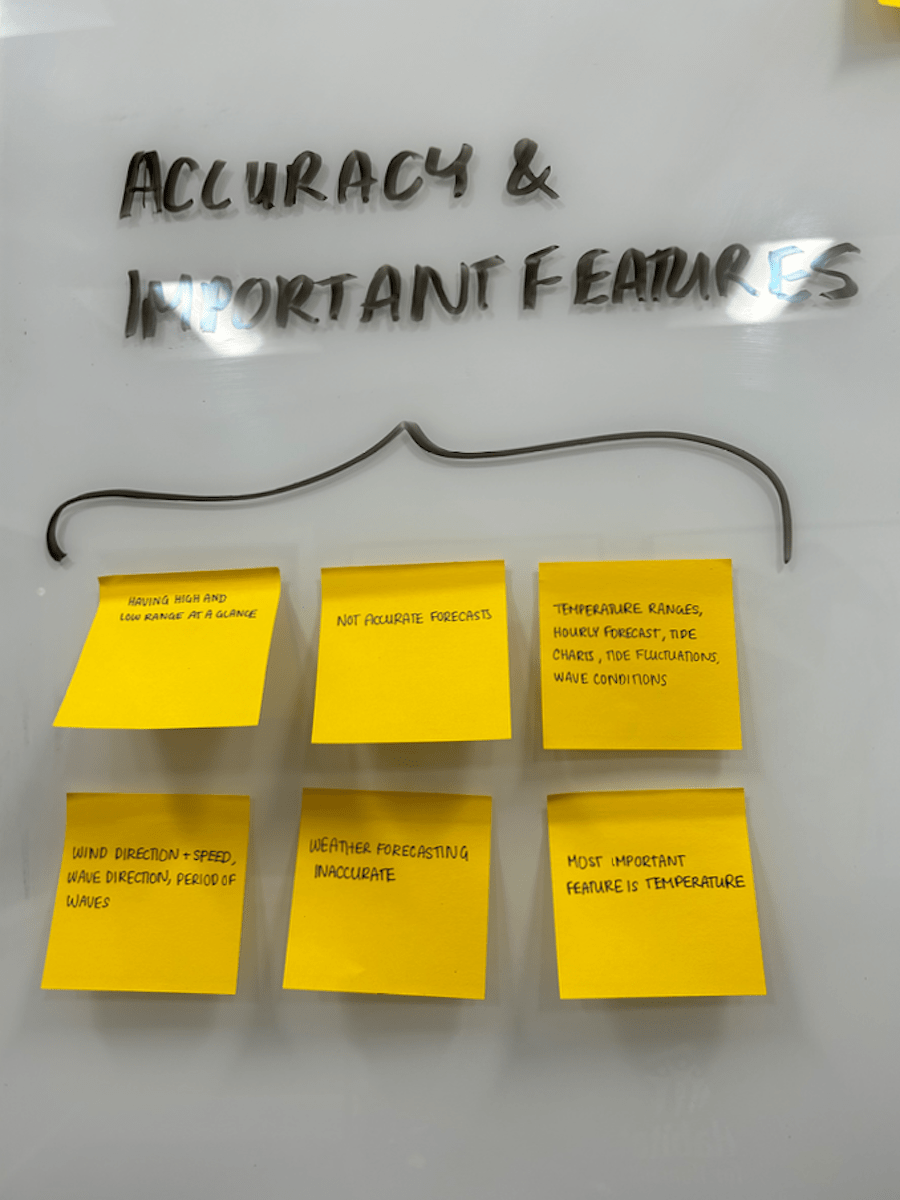 ACCURACY &
IMPORTANT FEATURES
HAVING HIGH AND
LOW RANGE AT A GLANCE
NOT ACCURATE FORECASTS
TEMPERATURE RANGES,
HOURLY FORECAST, TIDE
CHARTS, TIDE FLUCTUATIONS,
WAVE CONDITIONS
WIND DIRECTION + SPEED,
WAVE DIRECTION, PERIOD OF
WAVES
WEATHER FORECASTING
INACCURATE
MOST IMPORTANT
FEATURE IS TEMPERATURE